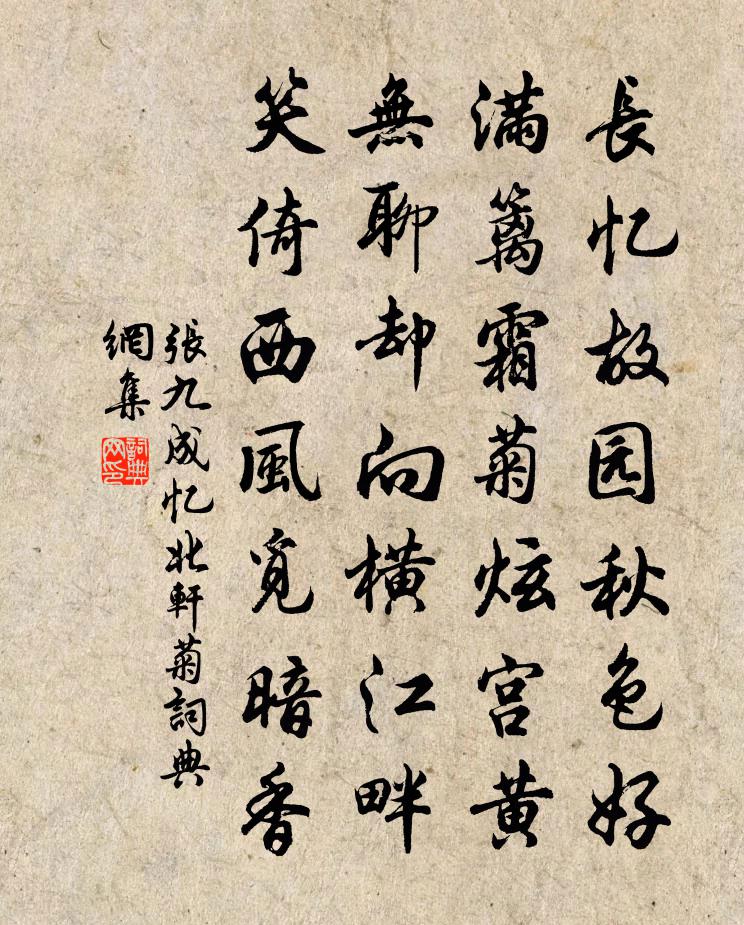 長忆故园秋色好
满篱霜菊炫宫黄
無聊却向横江畔
笑倚西風觅暗香
張九成忆北軒菊詞典
網集
詞典
网印